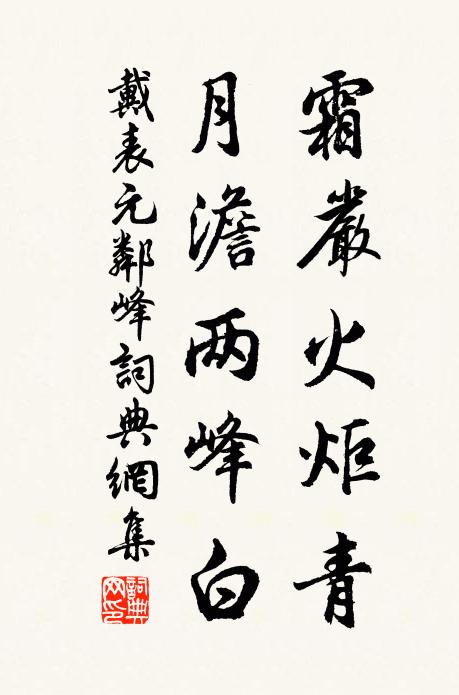 霜嚴火炬青
月澹两峰白
戴表元鄰峰詞典網集
詞典网印